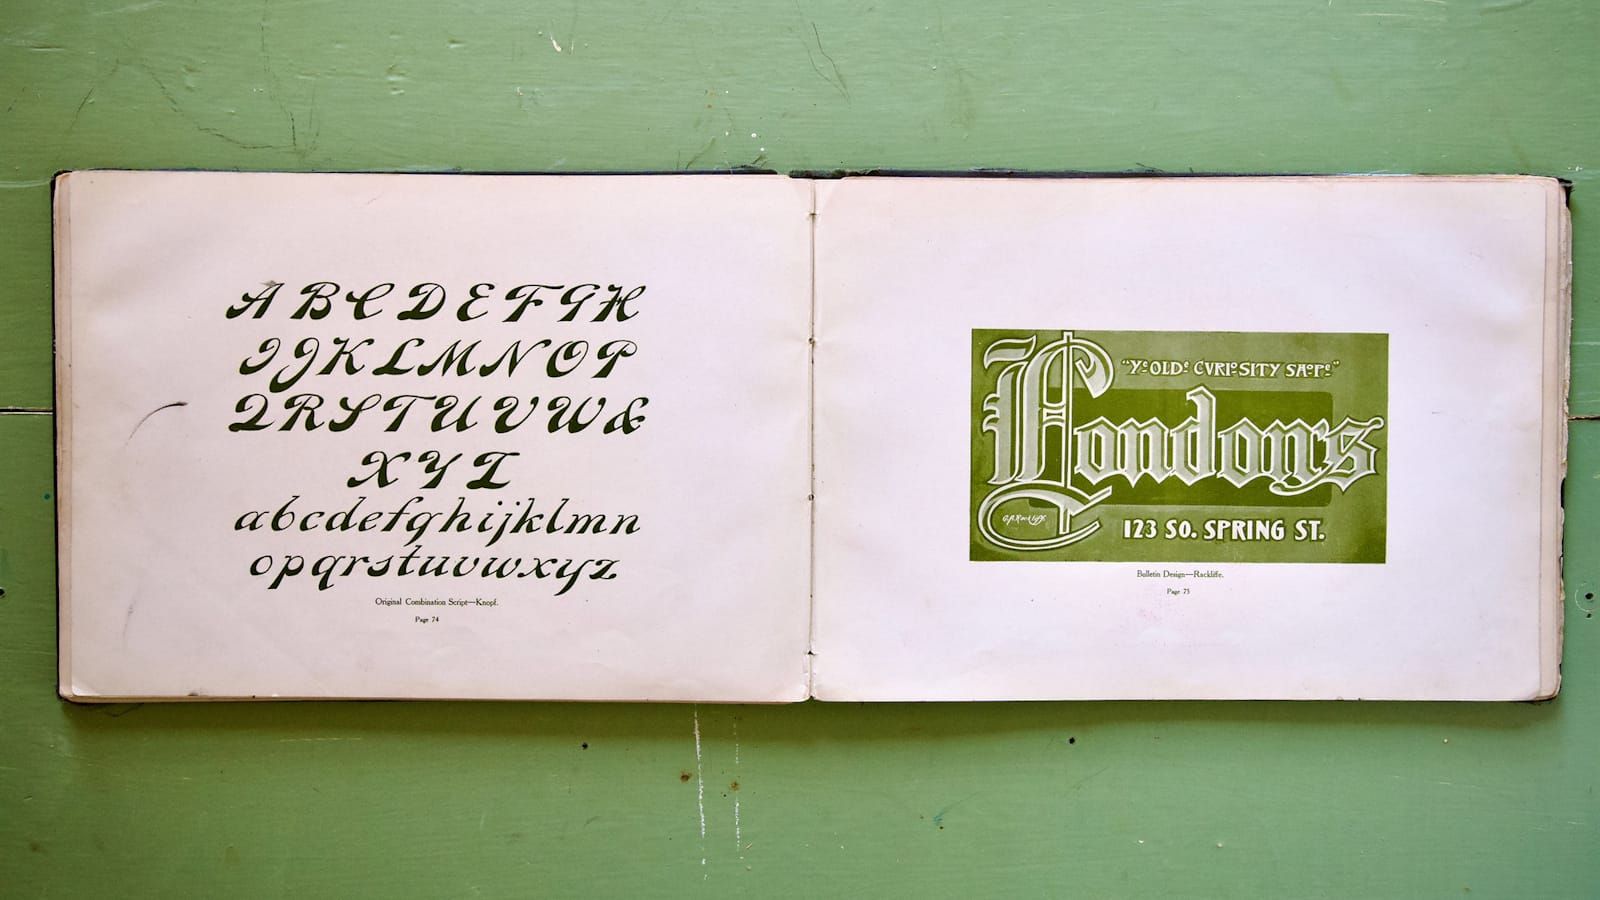 A B C D E F G H
I J K L M N O P
Q R S T U V W &
X Y Z
abcdefghijklmn
opqrstuvwxyz
Original Combination Script—Knopf.
Page 74
"Ye OLDe CVRIoSITY SHoPe"
London's
123 SO. SPRING ST.
Bulletin Design—Rackliffe.
Page 75